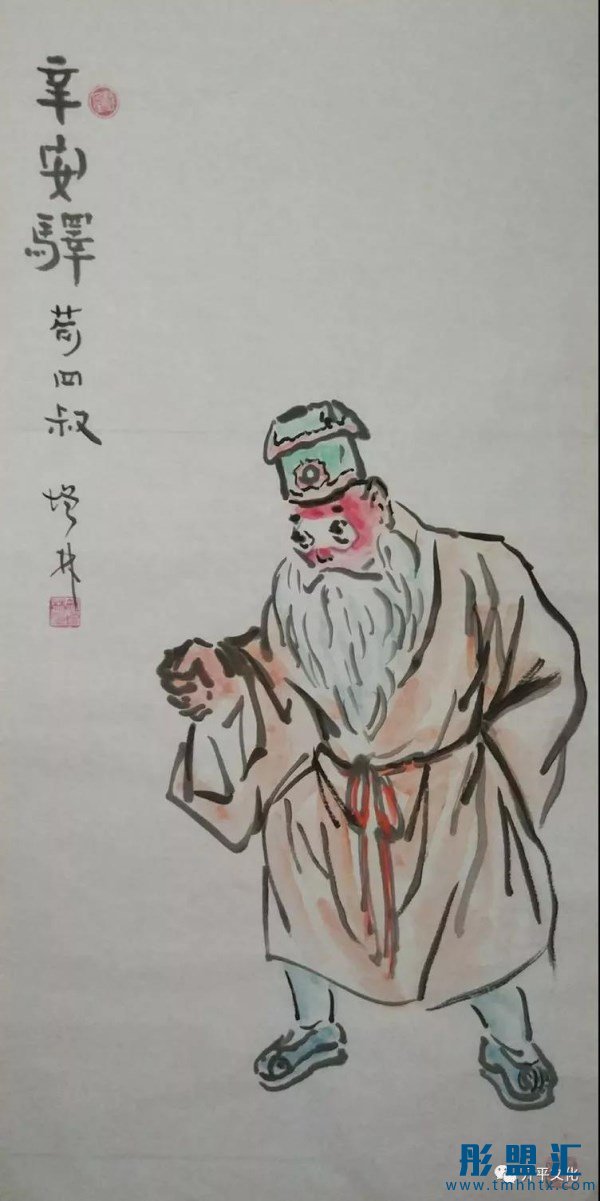 辛安驛
苟四叔
增林
平文化
彤盟汇
www.tmhhtx.com